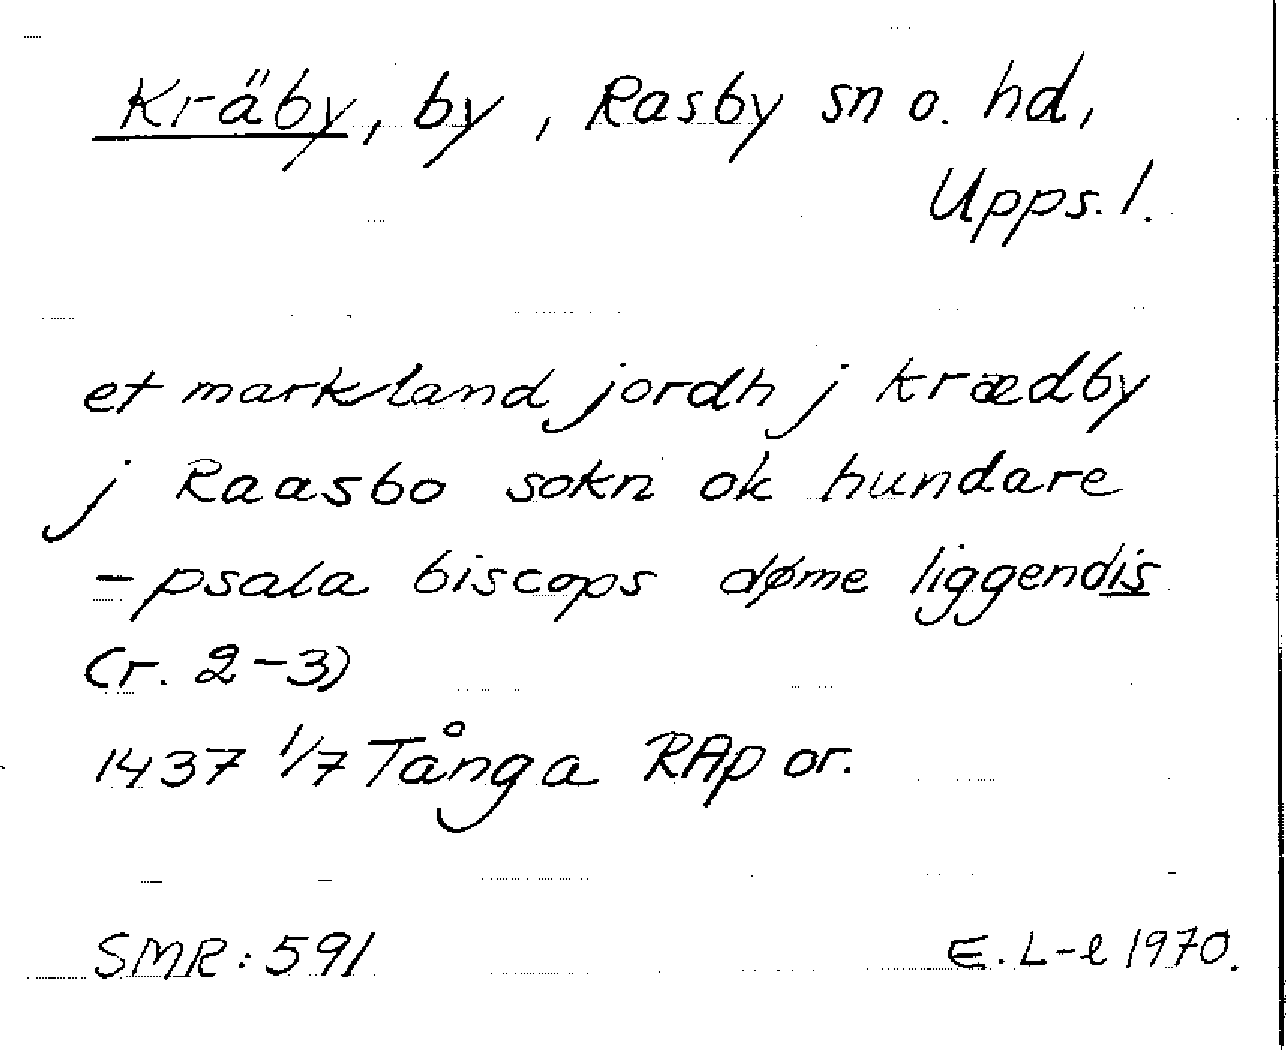 Kräby, by, Rasby sn o. hd,
Upps. l.
et markland jordh j krædby
j Raasbo sokn ok hundare
-psala biscops døme liggendis
(r. 2-3)
1437 1/7 Tånga RAp or.
SMR: 591
E. L-l 1970.